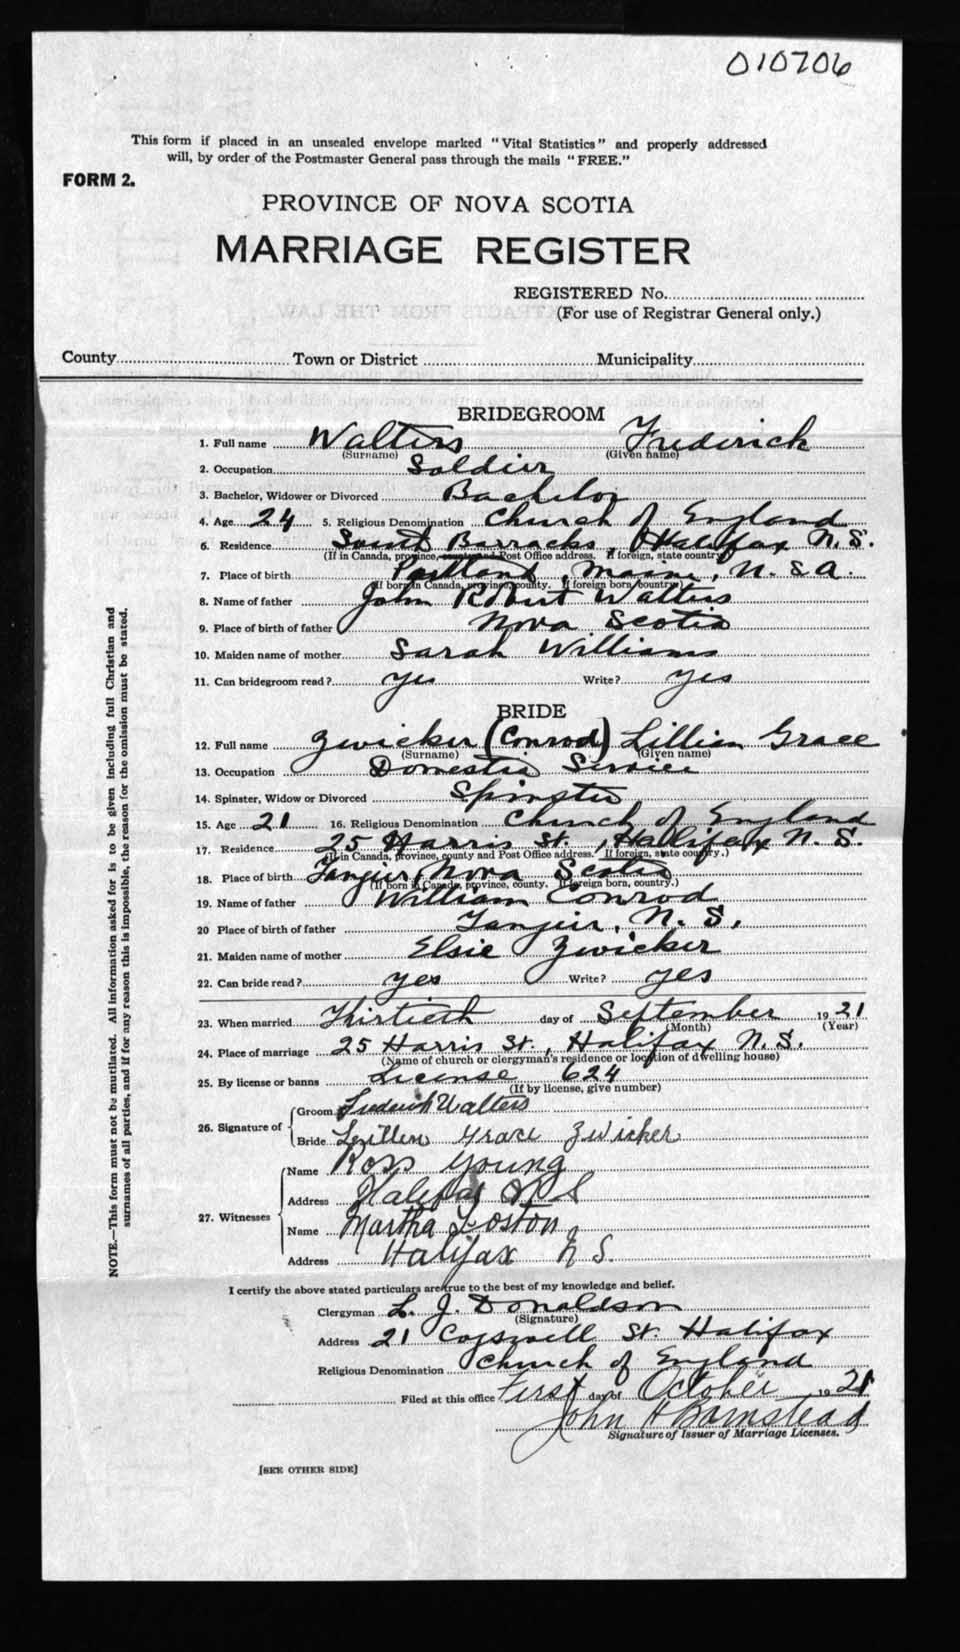 010706
This form if placed in an unsealed envelope marked "Vital Statistics" and properly addressed
will, by order of the Postmaster General pass through the mails "FREE."
FORM 2.
PROVINCE OF NOVA SCOTIA
MARRIAGE REGISTER
REGISTERED No.
(For use of Registrar General only.)
County Town or District Municipality
BRIDEGROOM
1. Full name Walters Frederick
(Surname) (Given name)
2. Occupation Soldier
3. Bachelor, Widower or Divorced Bachelor
4. Age 24 5. Religious Denomination Church of England
6. Residence Barracks, Halifax N.S.
(If in Canada, province, county and Post Office address. If foreign, state country)
7. Place of birth Portland, Maine, U.S.A.
(If born in Canada, province, county. If foreign born, country.)
8. Name of father John Robert Walters
9. Place of birth of father Nova Scotia
10. Maiden name of mother Sarah Williams
11. Can bridegroom read? yes Write? yes
BRIDE
12. Full name Zwicker (Conrod) Lillian Grace
(Surname) (Given name)
13. Occupation Domestic Service
14. Spinster, Widow or Divorced Spinster
15. Age 21 16. Religious Denomination Church of England
17. Residence 25 Harris St., Halifax N.S.
(If in Canada, province, county and Post Office address. If foreign, state country.)
18. Place of birth Tangier, Nova Scotia
(If born in Canada, province, county. If foreign born, country.)
19. Name of father William Conrod
20 Place of birth of father Tangier, N.S.
21. Maiden name of mother Elsie Zwicker
22. Can bride read? yes Write? yes
23. When married Thirtieth day of September 1921
(Month) (Year)
24. Place of marriage 25 Harris St., Halifax N.S.
(Name of church or clergyman's residence or location of dwelling house)
25. By license or banns License 624
(If by license, give number)
26. Signature of Groom Frederick Walters
Bride Lillien Grace Zwicker
27. Witnesses Name Ross Young
Address Halifax N S
Name Martha
Address Halifax N S.
I certify the above stated particulars are true to the best of my knowledge and belief.
Clergyman L. J. Donaldson
(Signature)
Address 21 Cogswell St. Halifax
Religious Denomination Church of England
Filed at this office First day of October 1921
John H Barnstead
Signature of Issuer of Marriage Licenses.
[SEE OTHER SIDE]
NOTE.—This form must not be mutilated. All information asked for is to be given including full Christian and
surnames of all parties, and if for any reason this is impossible, the reason for the omission must be stated.